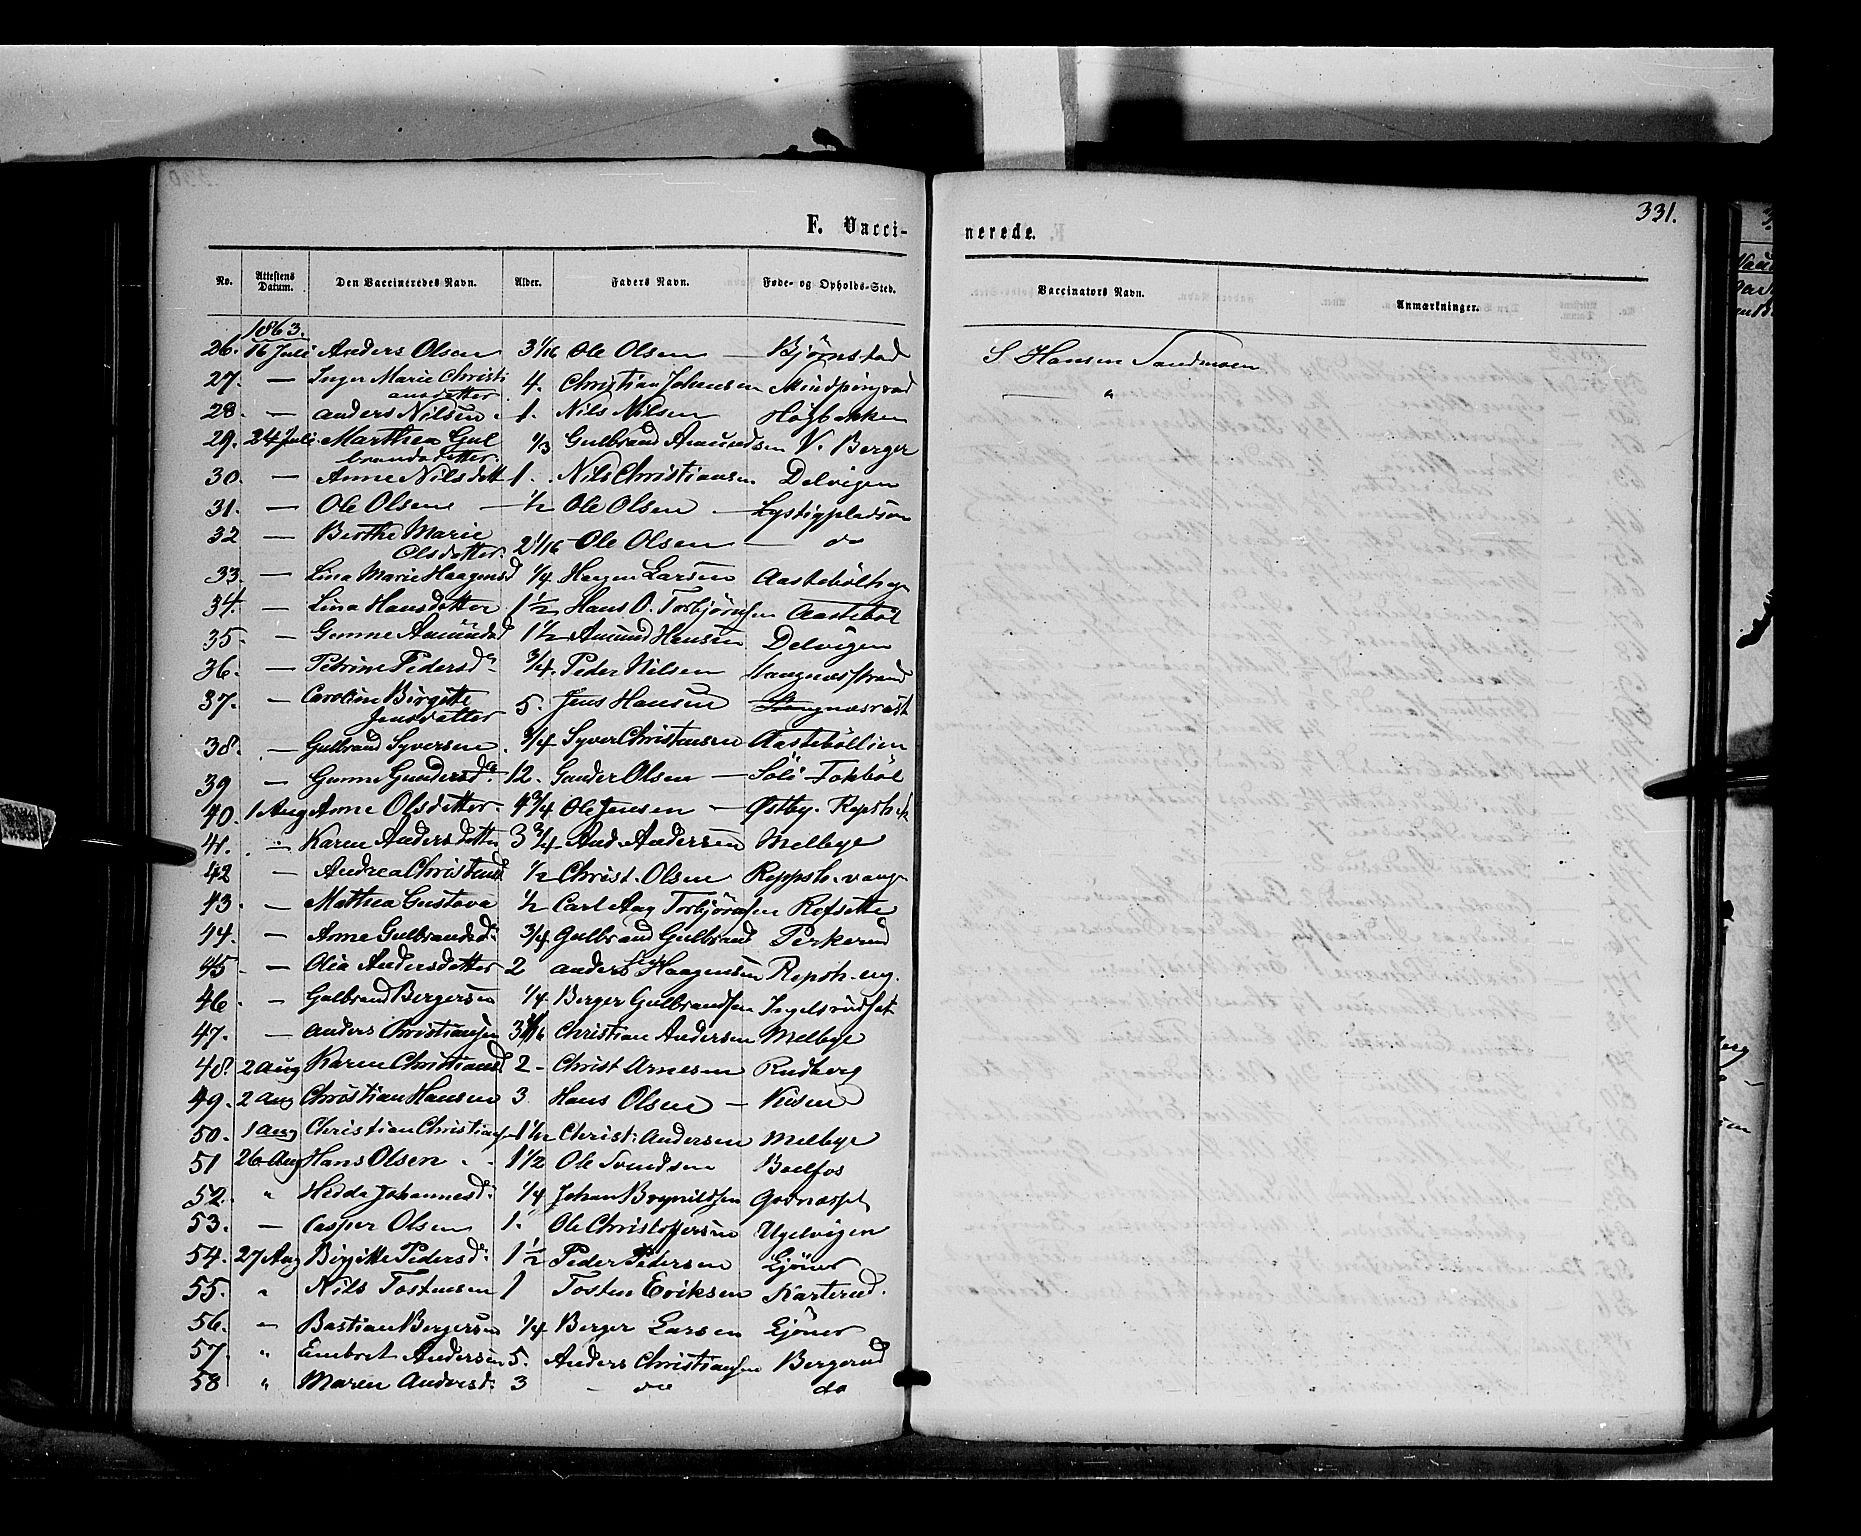 331.
F. Vacci-
nerede.
No. Attestens Datum. Den Vaccineredes Navn. Alder. Faders Navn. Føde- og Opholds-Sted. Vaccinators Navn. Anmærkninger.
1863.
26. 16 Juli Anders Olsen 3 1/16 Ole Olsen — Bjørnstad S Hansen Sandmoen
27. — Inger Marie Christi 4. Christian Johansen — "
ansdatter
28. — Anders Nilsen. 1. Nils Nilsen Høgbakken
29. 24 Juli Marthea Gul 1/3 Gulbrand Amundsen V. Berger
brandsdatter.
30 — Anne Nilsdatt 1. Nils Christiansen Delvigen
31. — Ole Olsen — 1/2 Ole Olsen — Lystigpladsen
32 — Berthe Marie
Olsdatter. 2 1/16 Ole Olsen — do
33. — Lina Marie Haagensd 1/4 Haagen Larsen
34. — Lina Hansdatter 1 1/2 Hans O. Torbjørnsen Aastebøl
35. — Gunne Amundsd 1 1/2 Amund Hansen Delvigen
36. — Petrine Pedersd. 3/4. Peder Nilsen Vangnæsstrand
37. — Caroline Birgitte
Jensdatter 5. Jens Hansen
38. — Gulbrand Syversen. 3/4 Syver Christensen Aastebøllien
39 — Gunne Gundersda 12. Gunder Olsen —
40. 1 Aug Anne Olsdatter. 4 3/4 Ole Jensen — Østby.
41. — Karen Andersdatter 3 3/4 And. Andersen Melbye
42 — Andrea Christensd 1/2 Christ. Olsen
43. — Mathea Gustava 1/2 Carl Aug Torbjørnsen Rofsette
44. — Anne Gulbrandsd. 3/4 Gulbrand Gulbrands Perkerud
45. — Olia Andersdatter 2 Anders Haagensen Repsh. eng.
46. — Gulbrand Bergersen 1/4 Berger Gulbrandsen Ingelsrudset
47. — Anders Christiansen 3 Christian Andersen Melbye
48. 2 Aug Karen Christiansd 2 - Christ Arnesen Rudberg
49. 2 Aug Christian Hansen 3 Hans Olsen —
50. 1 Aug Christian Christiansen Christ. Andersen Melbye
51 26 Aug Hans Olsen 1 1/2 Ole Svendsen
52. " Hedda Johannesd. 1/4 Johan Brynildsen
53. — Casper Olsen 1. Ole Christoffersen Ugelvigen
54. 27 Aug Birgitte Pedersd. 1 1/2 Peder Pedersen Gjøner
55. " Nils Tostensen 1 Tosten Eriksen Karterud.
56. " Bastian Bergersen 1/4 Berger Larsen Gjøner
57. " Embret Andersen 5. Anders Christiansen Bergerud
58 " Maren Andersd. 3 — do do